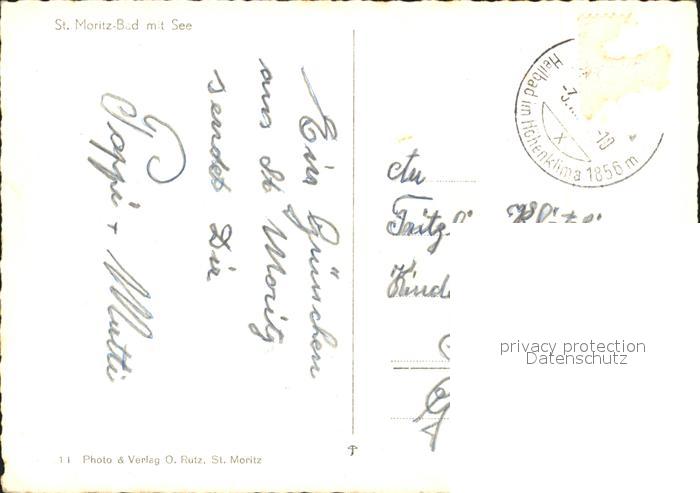 St. Moritz-Bad mit See
Ein Grüschen
aus St. Moritz
sendet Dir
Pappi + Mutti
Heilbad im Höhenklima 1856 m
X
An
Fritz
Kinde
privacy protection
Datenschutz
11 Photo & Verlag O. Rutz, St. Moritz